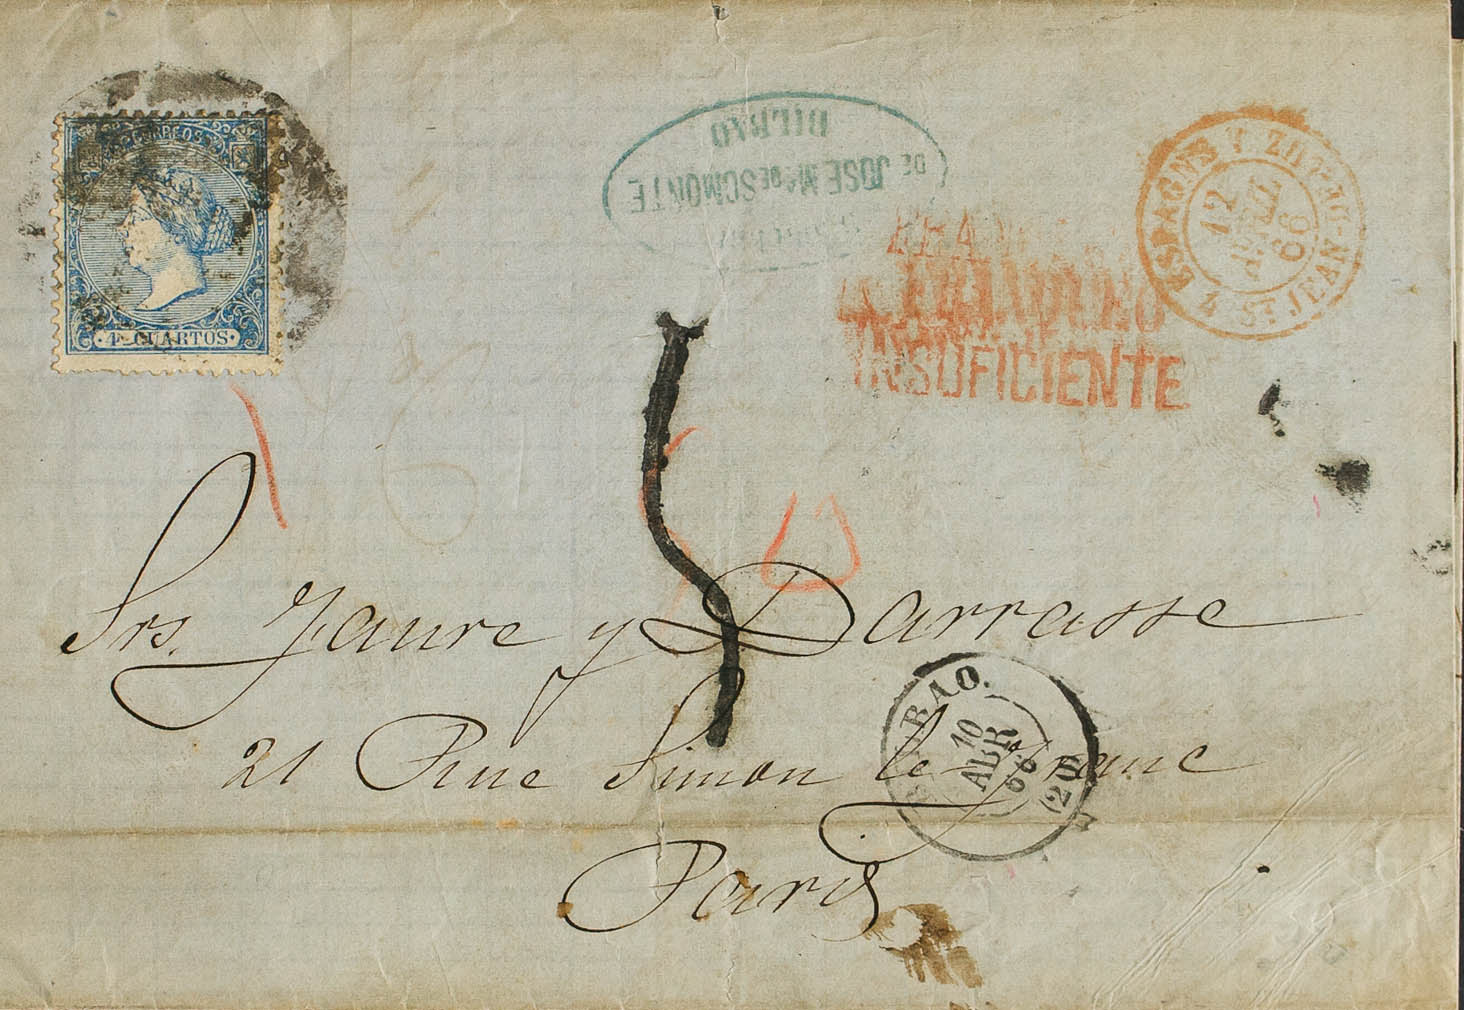 CORREOS
4 CUARTOS
DE JOSE Mª DE SCMONTE
BILBAO
ESPAGNE
12
AVRIL
66
4 ST JEAN-DE-LUZ 4
INSUFICIENTE
5
Srs. Jaure y Darrasse
21 Rue Simon le franc
Paris
BILBAO.
10
ABR
66
(20)